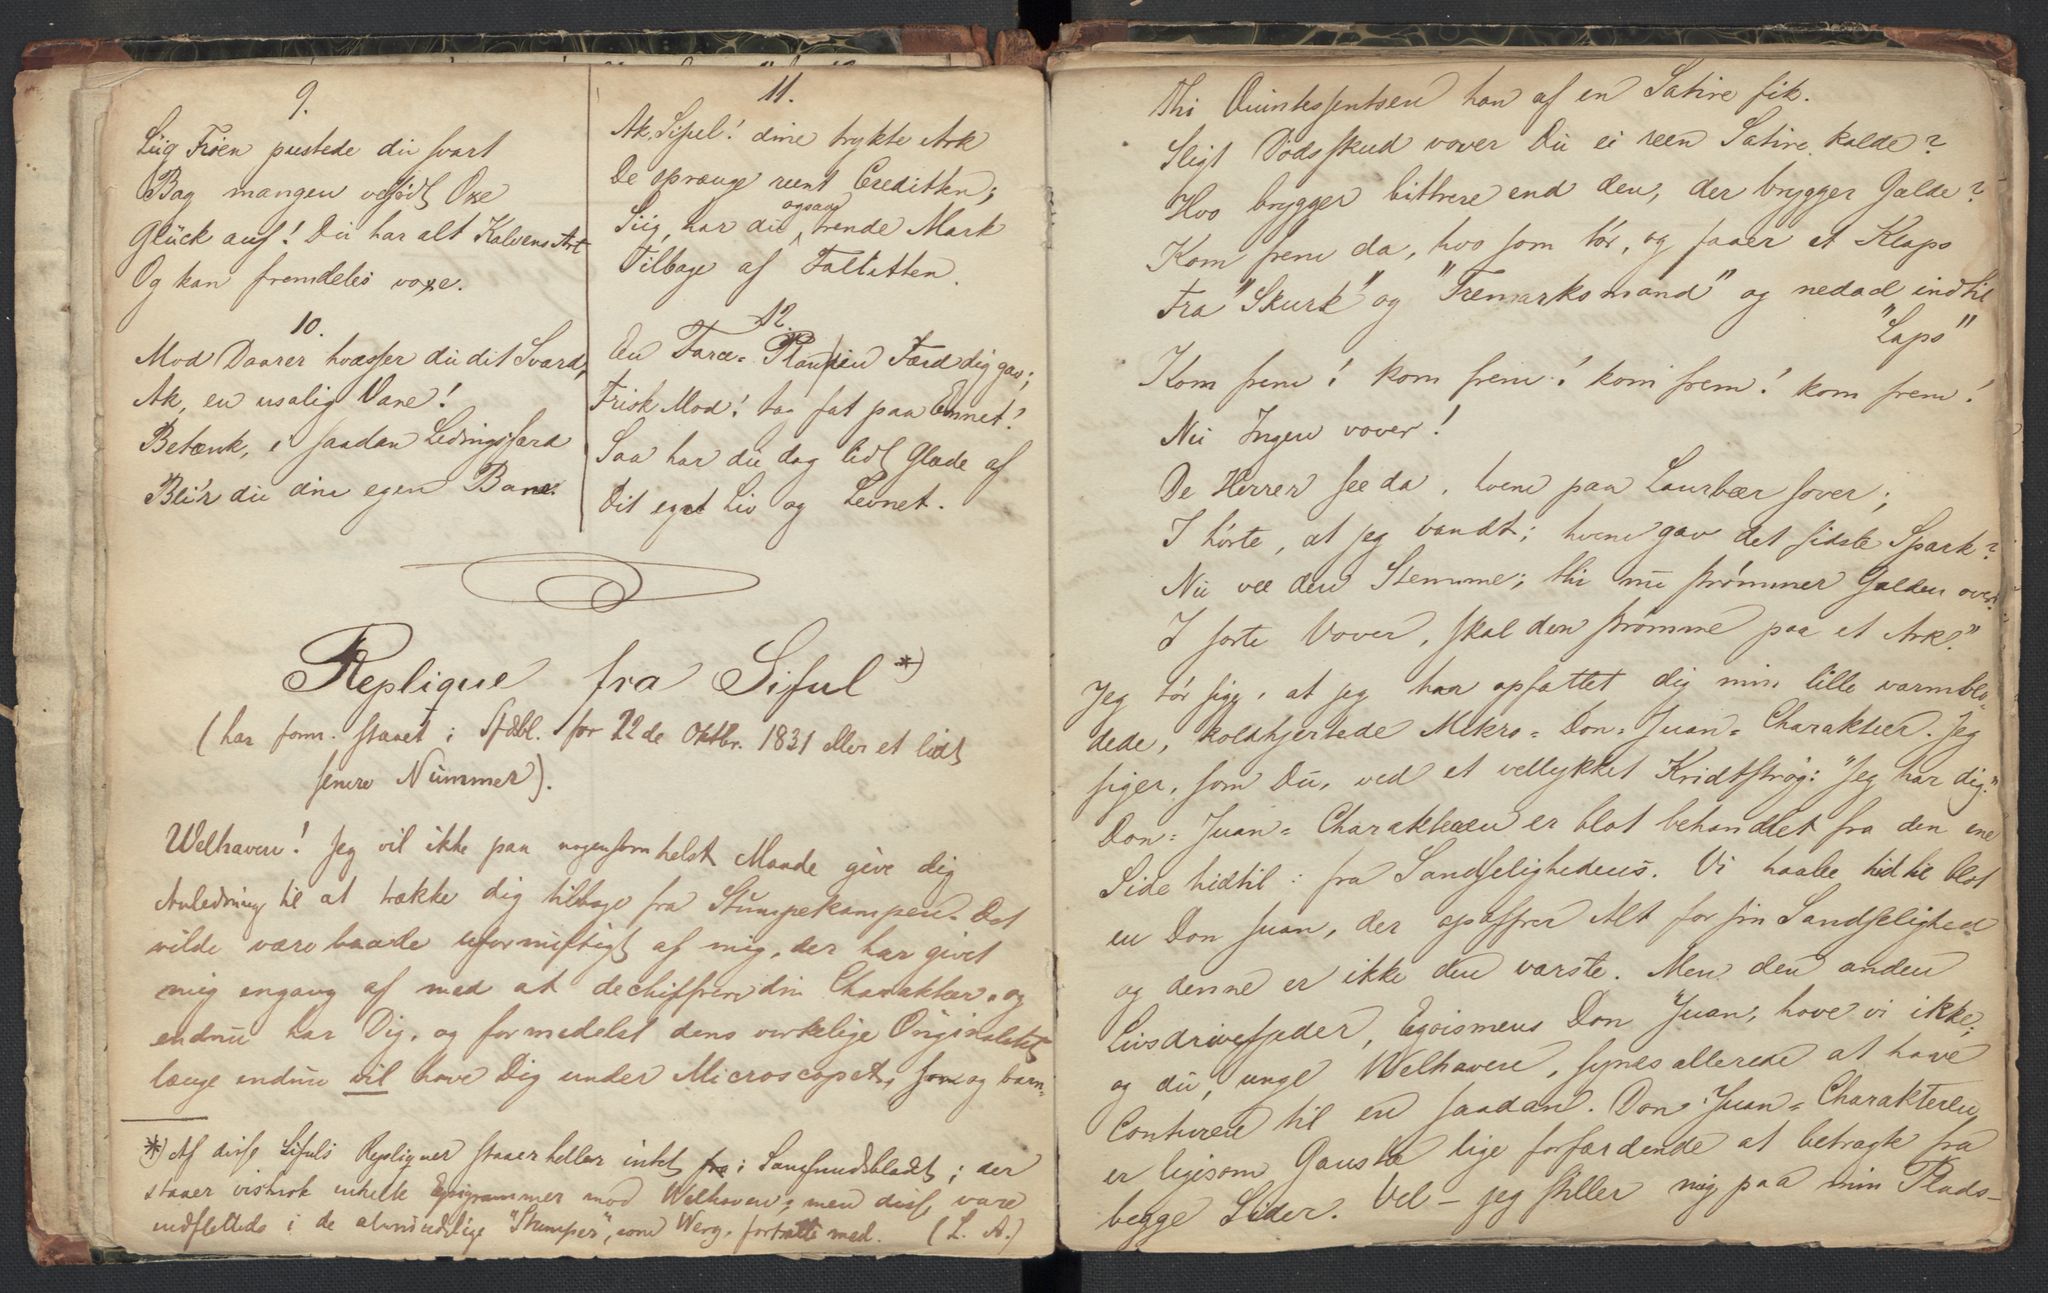 9.
Liig Frøen pustede du svart
Bag mangen vefødt Oxe
Glück auf! Du har alt Kalvens Art
Og kan fremdeles voxe.
10.
Mod Daarer hvæsser du dit Sværd,
Ak, en usalig Vane!
Betænk, i saadan Ledingsfærd
Bli'r du din egen Bane.
11.
Ak, Siful! dine trykte Ark
De sprænge reent Creditten;
Siig, har du ogsaa trende Mark
Tilbage af Fallitten.
12.
En Farce-Plan sin Færd dig gav;
Frisk Mod! tag fat paa Emnet!
Saa har du dog lidt Glæde af
Dit eget Liv og Levnet.
Replique fra Siful *)
(har form. staaet i Stdbl. for 22de Oktbr. 1831 eller et lidt
senere Nummer).
Welhaven! Jeg vil ikke paa nogensomhelst Maade give dig
Anledning til at trække dig tilbage fra Stumpekampen. Det
vilde være baade ufornuftigt af mig, der har givet
mig engang af med at dechiffrere din Charakter, og
endnu har Dig, og formedelst dens virkelige Originalitet
længe endnu vil have Dig under Microscopet, som og barn-
*) Af disse Sifuls Repliquer staaer heller intet i Samfundsbladet; der
staaer vistnok enkelte Epigrammer mod Welhaven; men disse vare
indflettede i de almindelige "Stumper", som Werg. fortsatte med. (L. A.)
Thi Quintessentsen han af en Satire fik.
Sligt Dødsskud vover Du ei reen Satire kalde?
Hvo brygger bittrere end den, der brygger Galde?
Kom frem da, hvo som tør, og faaer et Klaps
Fra "Skurk" og "Tremarksmand" og nedad indtil
"Laps"
Kom frem! kom frem! kom frem! kom frem!
Nu Ingen vover!
De Herrer see da, hvem paa Laurbær sover;
I hørte, at jeg vandt; hvem gav det sidste Spark?
Nu vee den Stemme; thi nu strømmer Galden over.
I sorte Vover, skal den strømme paa et Ark."
Jeg tør sige, at jeg har opfattet dig min lille varmblo-
dede, koldhjertede Mikro-Don-Juan-Charakteer. Jeg
siger, som Du, ved et vellykket Kridtstrøg: "Jeg har dig."
Don-Juan-Charakteren er blot behandlet fra den ene
Side hidtil: fra Sandselighedens. Vi have hidtil blot
en Don Juan, der opoffrer Alt for sin Sandselighed
og denne er ikke den værste. Men den anden
Livsdrivefjeder, Egoismens Don Juan, have vi ikke;
og du, unge Welhaven, synes allerede at have
Conturen til en saadan. Don-Juan-Charakteren,
er ligesom Gausta lige forfærdende at betragte fra
begge Sider. Vel – jeg stiller mig paa min Plads-